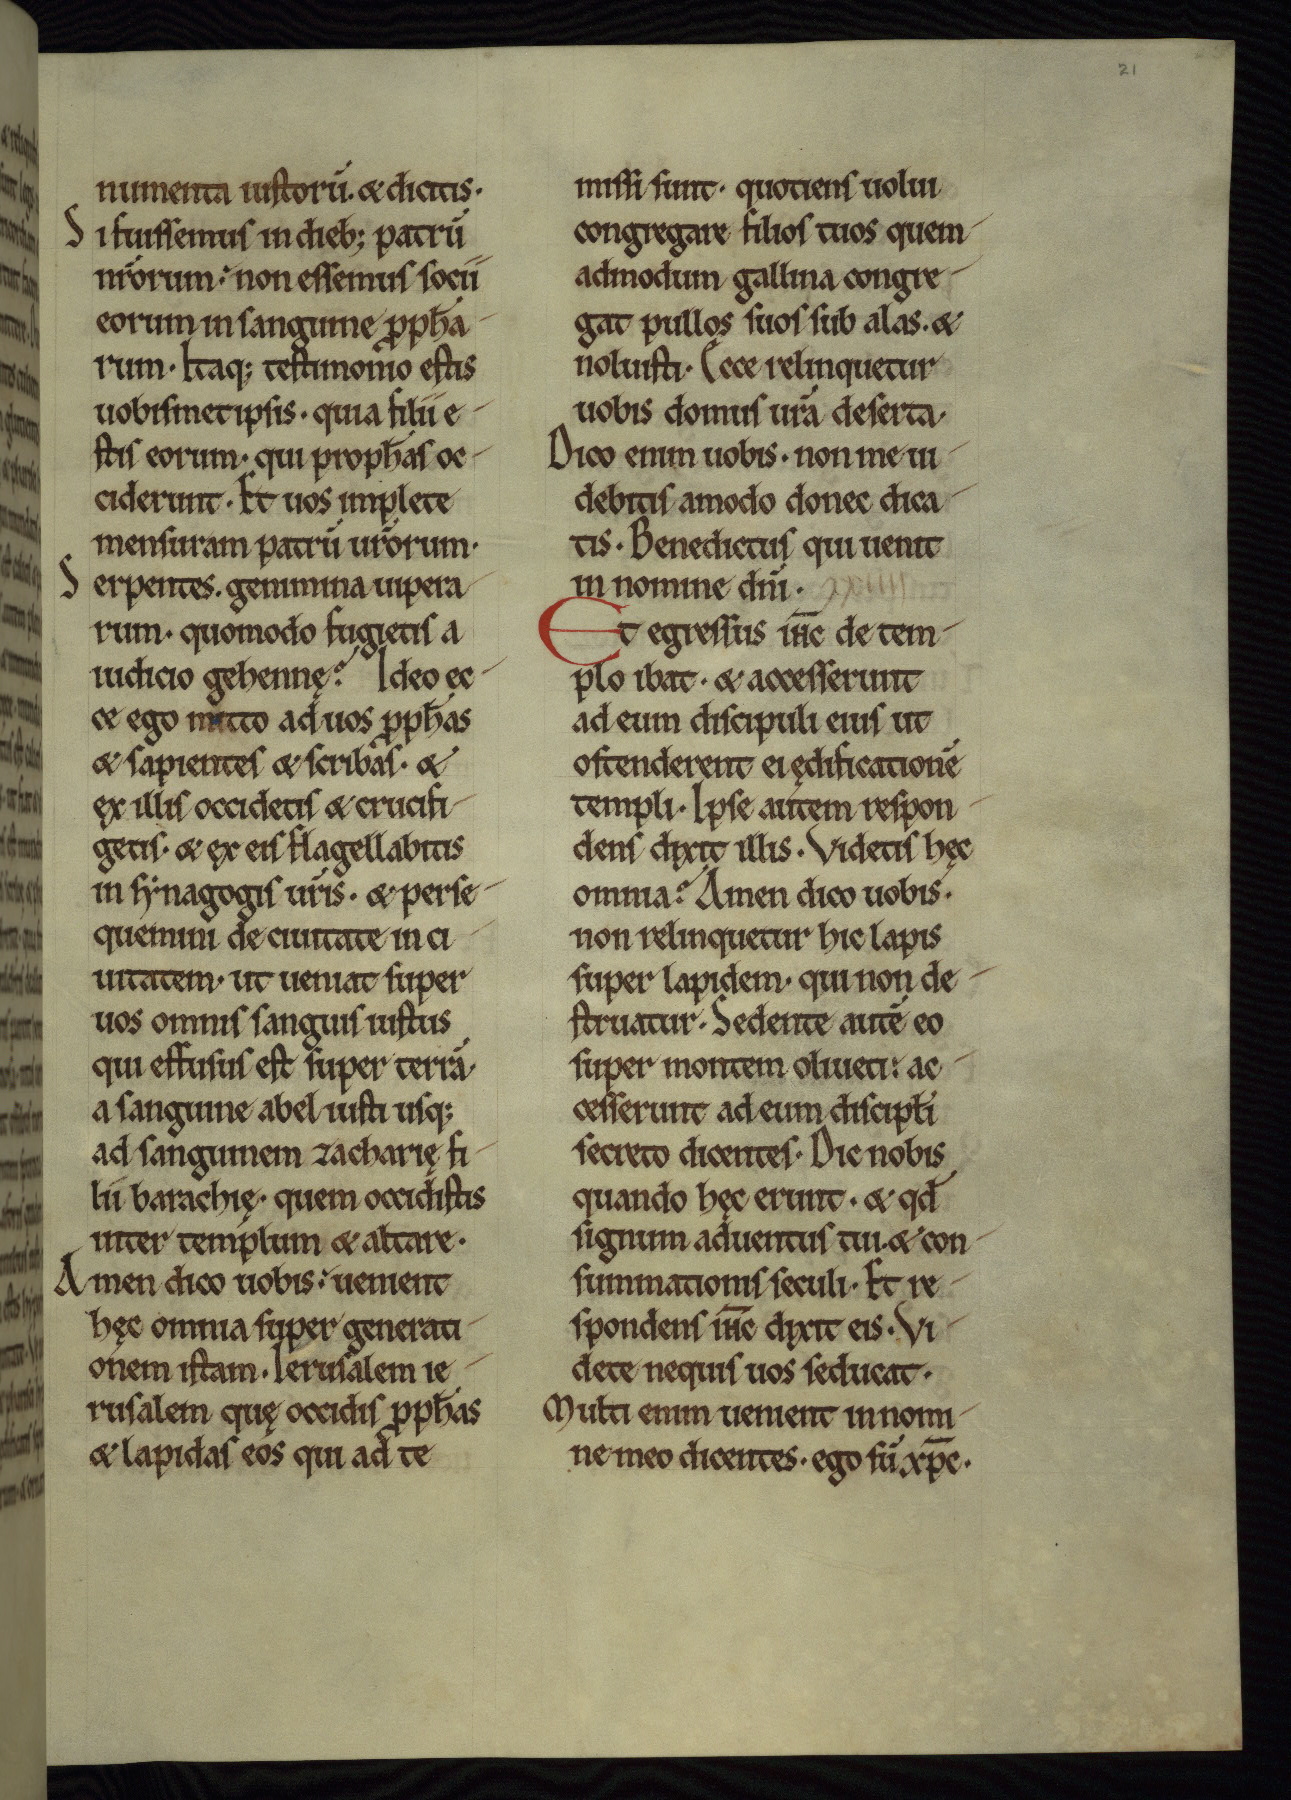 21
numenta iustorū. & dicitis.
Si fuissemus in dieb; patrū
nr̄orum: non essemus socii
eorum in sanguine ꝓph̄a
rum. Itaq; testimonio estis
uobismetipsis. quia filii e
stis eorum. qui proph̄as oc
ciderunt. Et uos implete
mensuram patrū ur̄orum.
Serpentes. genimina uipera
rum. quomodo fugietis a
iudicio gehennę? Ideo ec
ce ego mitto ad uos ꝓph̄as
& sapientes & scribas. &
ex illis occidetis & crucifi
getis. & ex eis flagellabitis
in synagogis ur̄is. & perse
quemini de ciuitate in ci
uitatem. ut ueniat super
uos omnis sanguis iustus
qui effusus est super terrā.
a sanguine abel iusti usq;
ad sanguinem zacharię fi
lii barachię. quem occidistis
inter templum & altare.
Amen dico uobis: uenient
hęc omnia super generati
onem istam. Ierusalem ie
rusalem quę occidis ꝓph̄as
& lapidas eos qui ad te
missi sunt. quotiens uolui
congregare filios tuos quem
admodum gallina congre
gat pullos suos sub alas. &
noluisti. Ecce relinquetur
uobis domus ur̄a deserta.
Dico enim uobis. non me ui
debitis amodo donec dica
tis. Benedictus qui uenit
in nomine dn̄i.
Et egressus ih̄c de tem
plo ibat. & accesserunt
ad eum discipuli eius ut
ostenderent ei ędificationē
templi. Ipse autem respon
dens dixit illis. Videtis hęc
omnia? Amen dico uobis.
non relinquetur hic lapis
super lapidem. qui non de
struatur. Sedente autē eo
super montem oliueti: ac
cesserunt ad eum discipłi
secreto dicentes. Dic nobis
quando hęc erunt. & qd̄
signum aduentus tui. & con
summationis seculi. Et re
spondens ih̄c dixit eis. Vi
dete nequis uos seducat.
Multi enim uenient in nomi
ne meo dicentes. ego sū xp̄c.